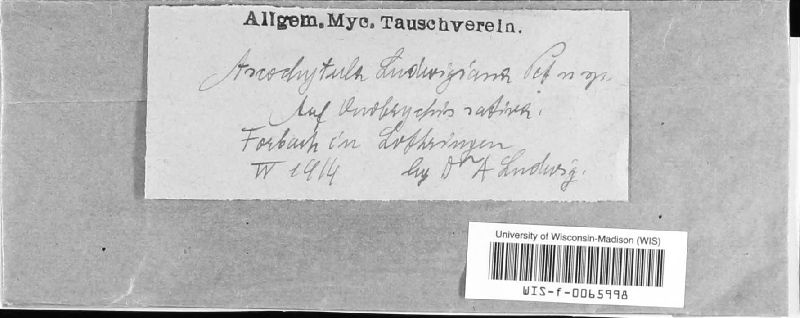 Allgem. Myc. Tauschverein.
Ascochytula Ludwigiana Pet n sp.
Auf Onobrychis sativa.
Forbach in Lothringen
IV 1914 leg Dr A Ludwig.
University of Wisconsin-Madison (WIS)
WIS-f-0065998